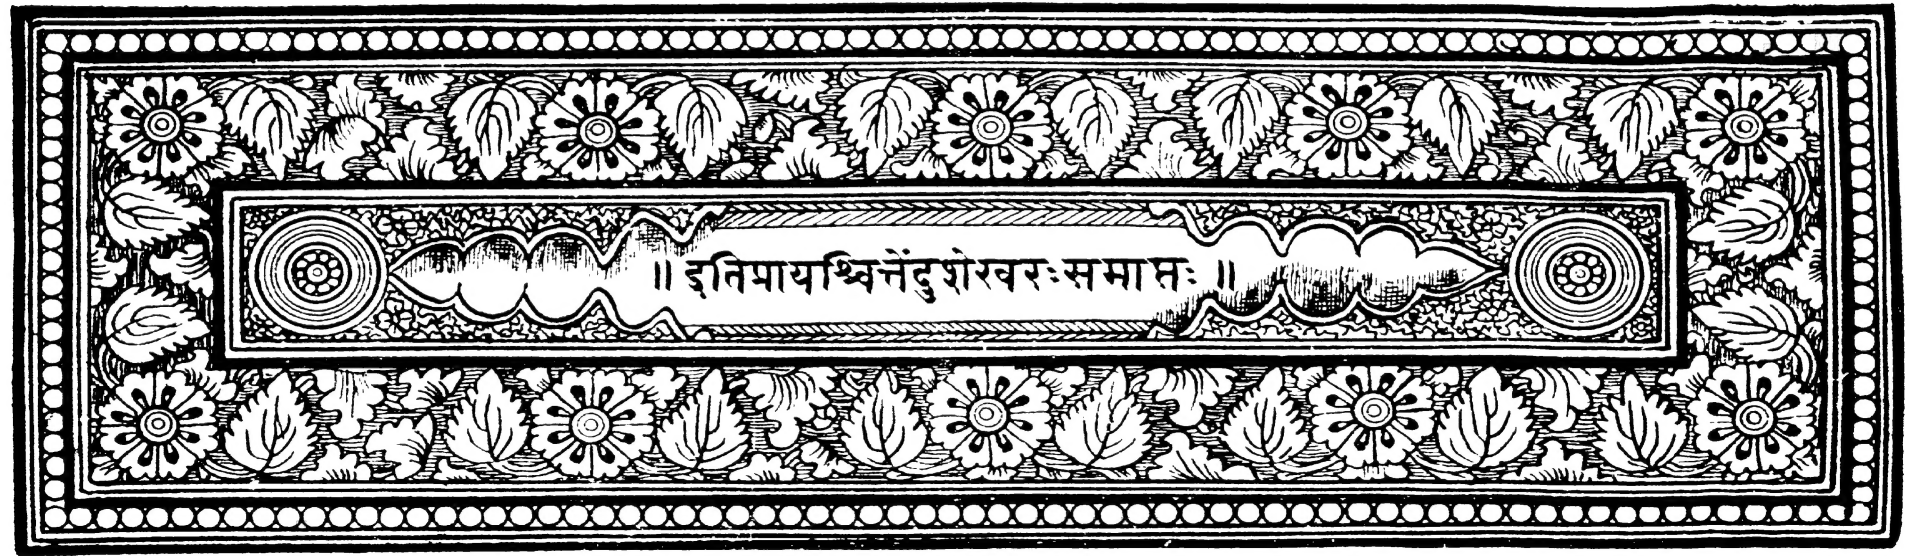 ॥ इतिप्रायश्चित्तेंदुशेखरः समाप्तः ॥